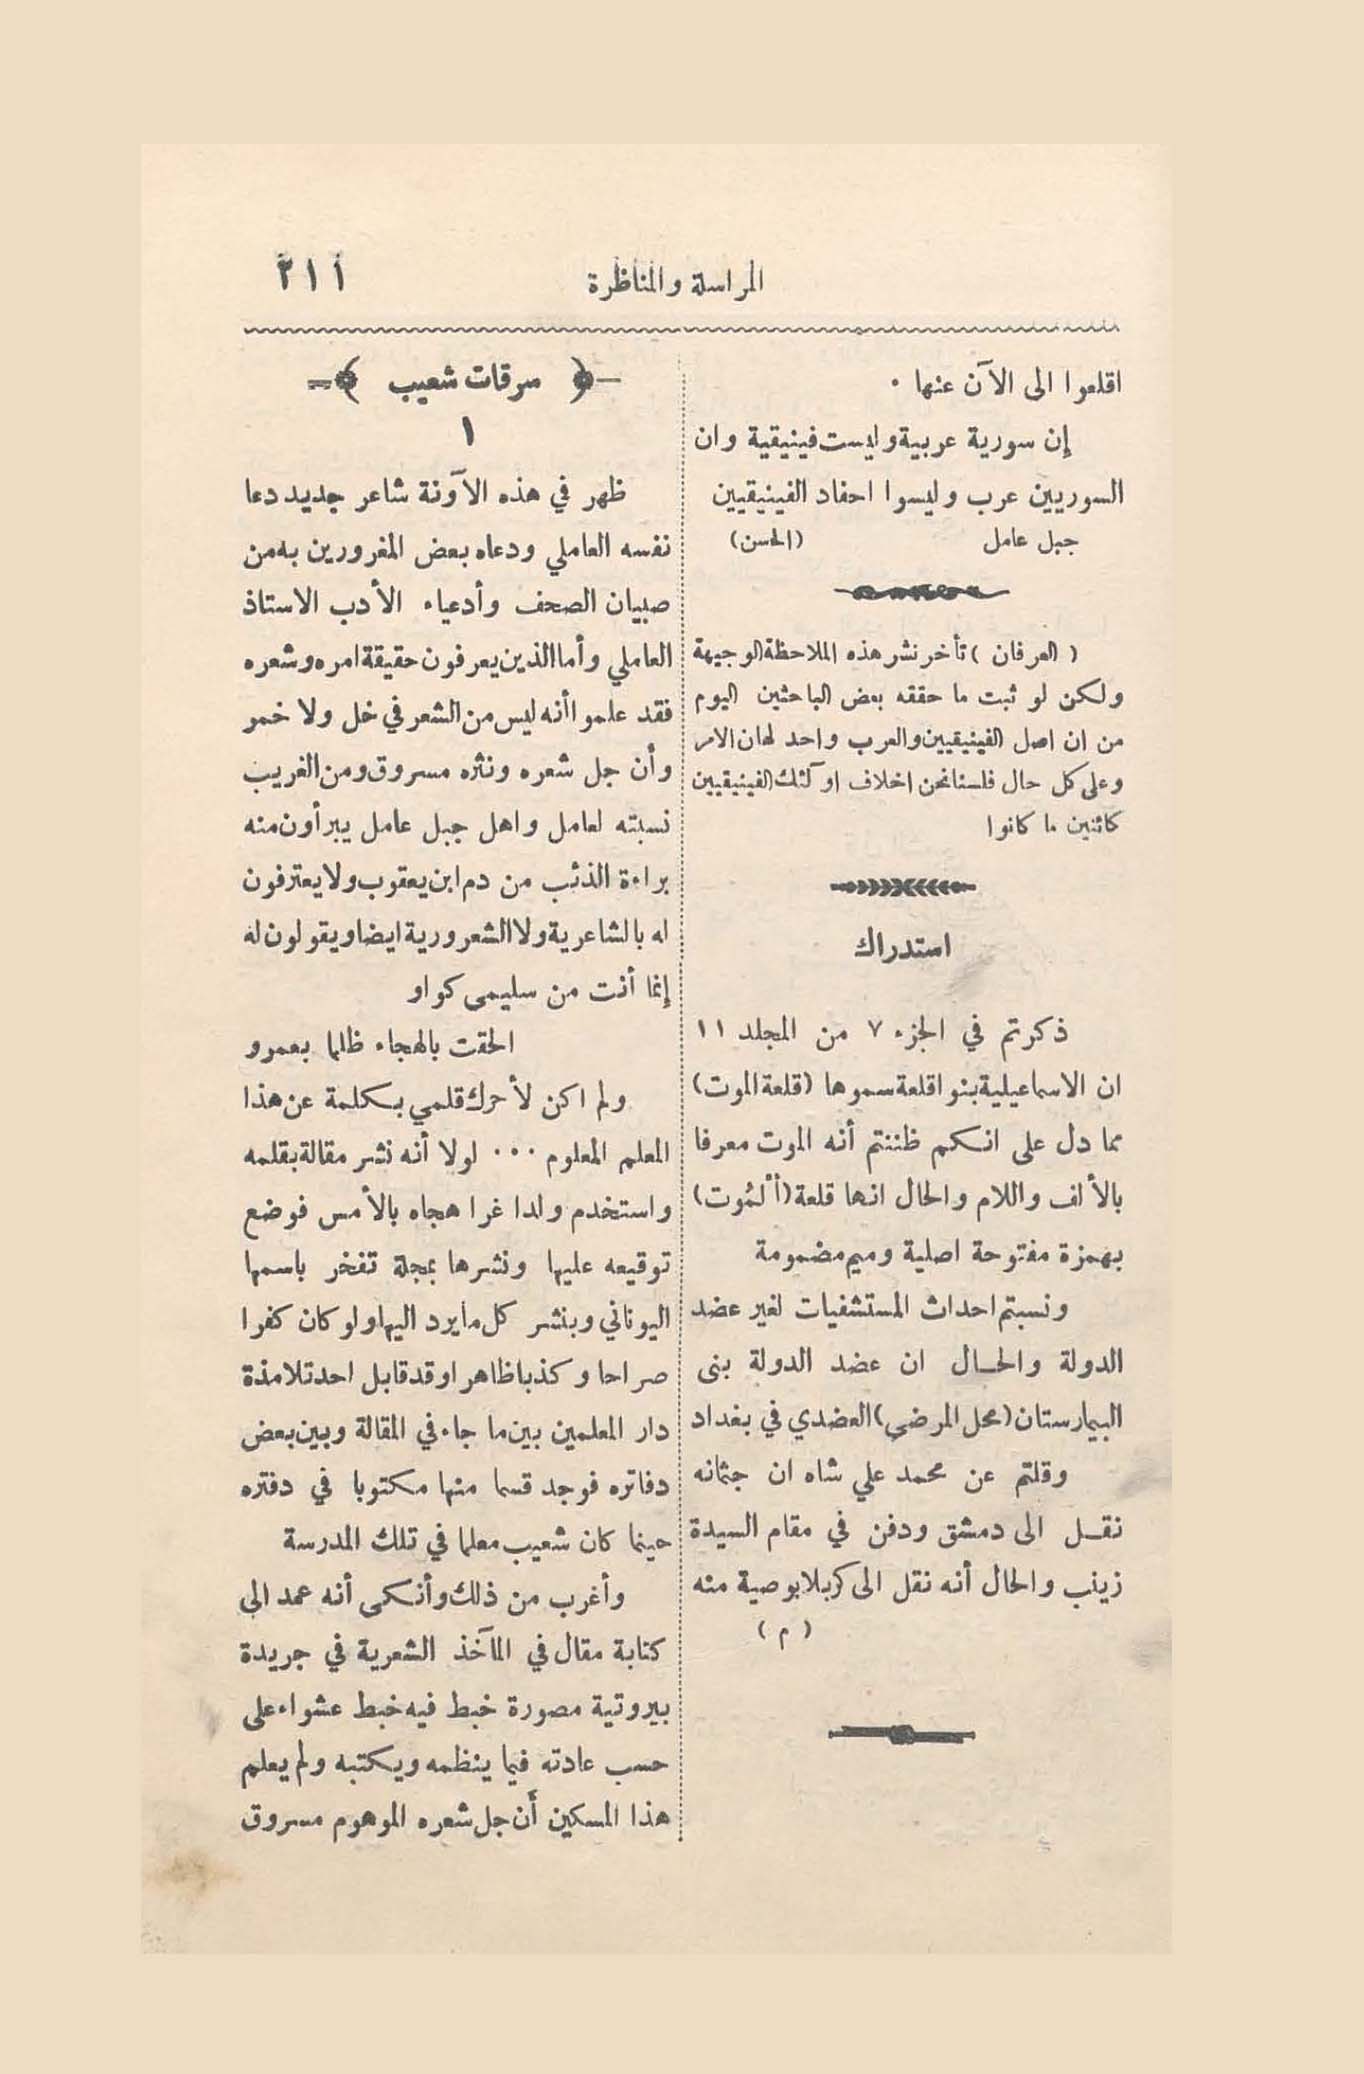 المراسلة والمناظرة
٢١١
اقلعوا الى الآن عنها ٠
إن سورية عربية وليست فينيقية وان
السوريين عرب وليسوا احفاد الفينيقيين
جبل عامل (الحسن)
( العرفان ) تأخر نشر هذه الملاحظة الوجيهة
ولكن لو ثبت ما حققه بعض الباحثين اليوم
من ان اصل الفينيقيين والعرب واحد لهان الامر
وعلى كل حال فلسنا نحن اخلاف اولئك الفينيقيين
كائنين ما كانوا
استدراك
ذكرتم في الجزء ٧ من المجلد ١١
ان الاسماعيلية بنوا قلعة سموها (قلعة الموت)
مما دل على انكم ظننتم أنه الموت معرفا
بالألف واللام والحال انها قلعة (أَلَمُوت)
بهمزة مفتوحة اصلية وميم مضمومة
ونسبتم احداث المستشفيات لغير عضد
الدولة والحال ان عضد الدولة بنى
البيمارستان (محل المرضى) العضدي في بغداد
وقلتم عن محمد علي شاه ان جثمانه
نقل الى دمشق ودفن في مقام السيدة
زينب والحال أنه نقل الى كربلا بوصية منه
( م )
سرقات شعيب
١
ظهر في هذه الآونة شاعر جديد دعا
نفسه العاملي ودعاه بعض المغرورين به من
صبيان الصحف وأدعياء الأدب الاستاذ
العاملي وأما الذين يعرفون حقيقة امره وشعره
فقد علموا أنه ليس من الشعر في خل ولا خمر
وأن جل شعره ونثره مسروق ومن الغريب
نسبته لعامل واهل جبل عامل يبرأون منه
براءة الذئب من دم ابن يعقوب ولا يعترفون
له بالشاعرية ولا الشعرورية ايضا ويقولون له
إنما أنت من سليمى كواو
الحقت بالهجاء ظلما بعمرو
ولم اكن لأحرك قلمي بكلمة عن هذا
المعلم المعلوم ٠٠٠ لولا أنه نشر مقالة بقلمه
واستخدم ولدا غرا هجاه بالأمس فوضع
توقيعه عليها ونشرها بمجلة تفخر باسمها
اليوناني وبنشر كل ما يرد اليها ولو كان كفرا
صراحا وكذبا ظاهرا وقد قابل احد تلامذة
دار المعلمين بين ما جاء في المقالة وبين بعض
دفاتره فوجد قسما منها مكتوبا في دفتره
حينما كان شعيب معلما في تلك المدرسة
وأغرب من ذلك وأنكى أنه عمد الى
كتابة مقال في المآخذ الشعرية في جريدة
بيروتية مصورة خبط فيه خبط عشواء على
حسب عادته فيما ينظمه ويكتبه ولم يعلم
هذا المسكين أَن جل شعره الموهوم مسروق